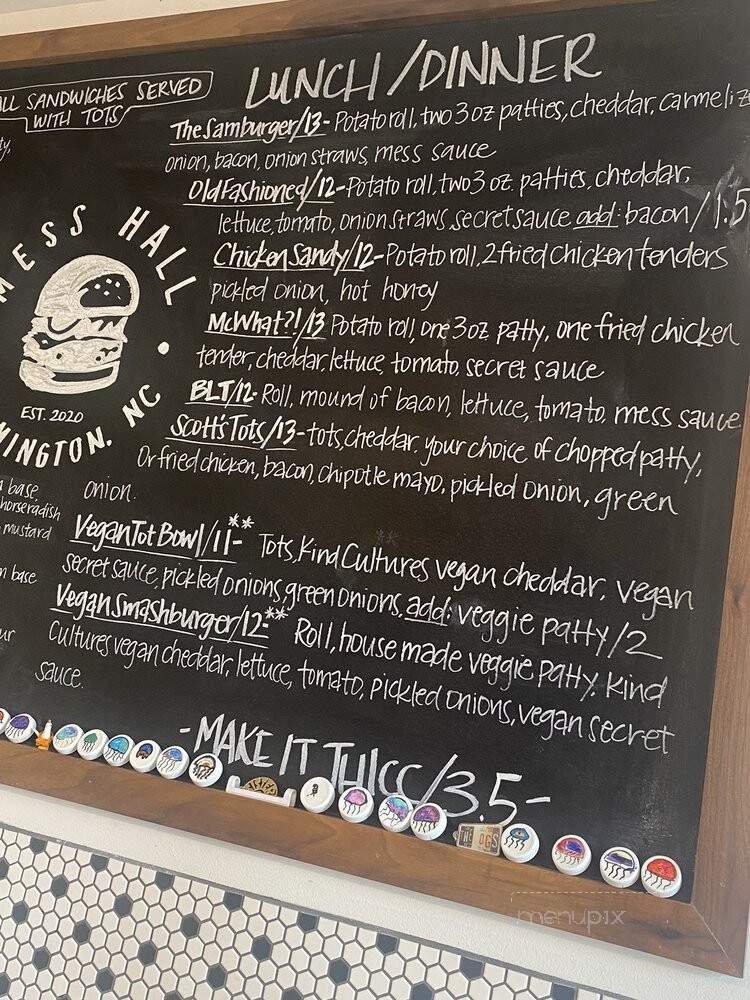 ALL SANDWICHES SERVED
WITH TOTS
LUNCH/DINNER
The Samburger/13- Potato roll, two 3 oz patties, cheddar, carmeliz
onion, bacon, onion straws, mess sauce
Old Fashioned/12- Potato roll, two 3 oz. patties, cheddar,
lettuce, tomato, onion straws, secret sauce add: bacon/1.5
Chicken Sandy/12- Potato roll, 2 fried chicken tenders
pickled onion, hot honey
McWhat?!/13 Potato roll, one 3 oz patty, one fried chicken
tender, cheddar, lettuce, tomato, secret sauce
BLT/12- Roll, mound of bacon, lettuce, tomato, mess sauce
Scott's Tots/13- tots, cheddar, your choice of chopped patty,
Or fried chicken, bacon, chipotle mayo, pickled onion, green
onion.
Vegan Tot Bowl/11-** Tots, Kind Cultures vegan cheddar, vegan
secret sauce, pickled onions, green onions, add: veggie patty/2
Vegan Smashburger/12-** Roll, house made veggie patty, Kind
Cultures vegan cheddar, lettuce, tomato, pickled onions, vegan secret
sauce.
-MAKE IT THICC/3.5-
MESS HALL
EST. 2020
MINGTON, NC
base,
horseradish
mustard
base
THE OGS
menupix